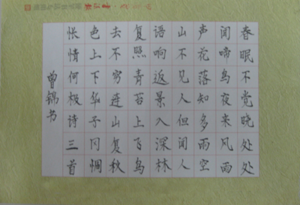 春眠不觉晓处处
闻啼鸟夜来风雨
声花落知多少空
山不见人但闻人
语响返景入深林
复照青苔上飞鸟
去不穷连山复秋
色上下华子冈惆
怅情何极诗三首
书